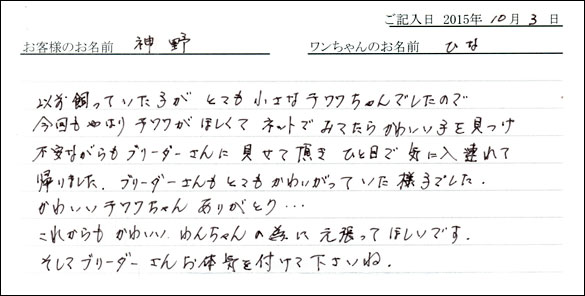 ご記入日 2015年 10月 3日
お客様のお名前 神野 ワンちゃんのお名前 ひな
以前飼っていた子が とても小さなチワワちゃんでしたので
今回も やはり チワワがほしくて ネットで みてたら かわいい子を見つけ
不安ながらも ブリーダーさんに 見せて頂き ひと目で 気に入 連れて
帰りました. ブリーダーさんも とても かわいがって いた 様子でした.
かわいい チワワちゃん ありがとう…
これからも かわいい わんちゃん の 為に 元張って ほしいです.
そして ブリーダーさん お体 気を付けて 下さいね.